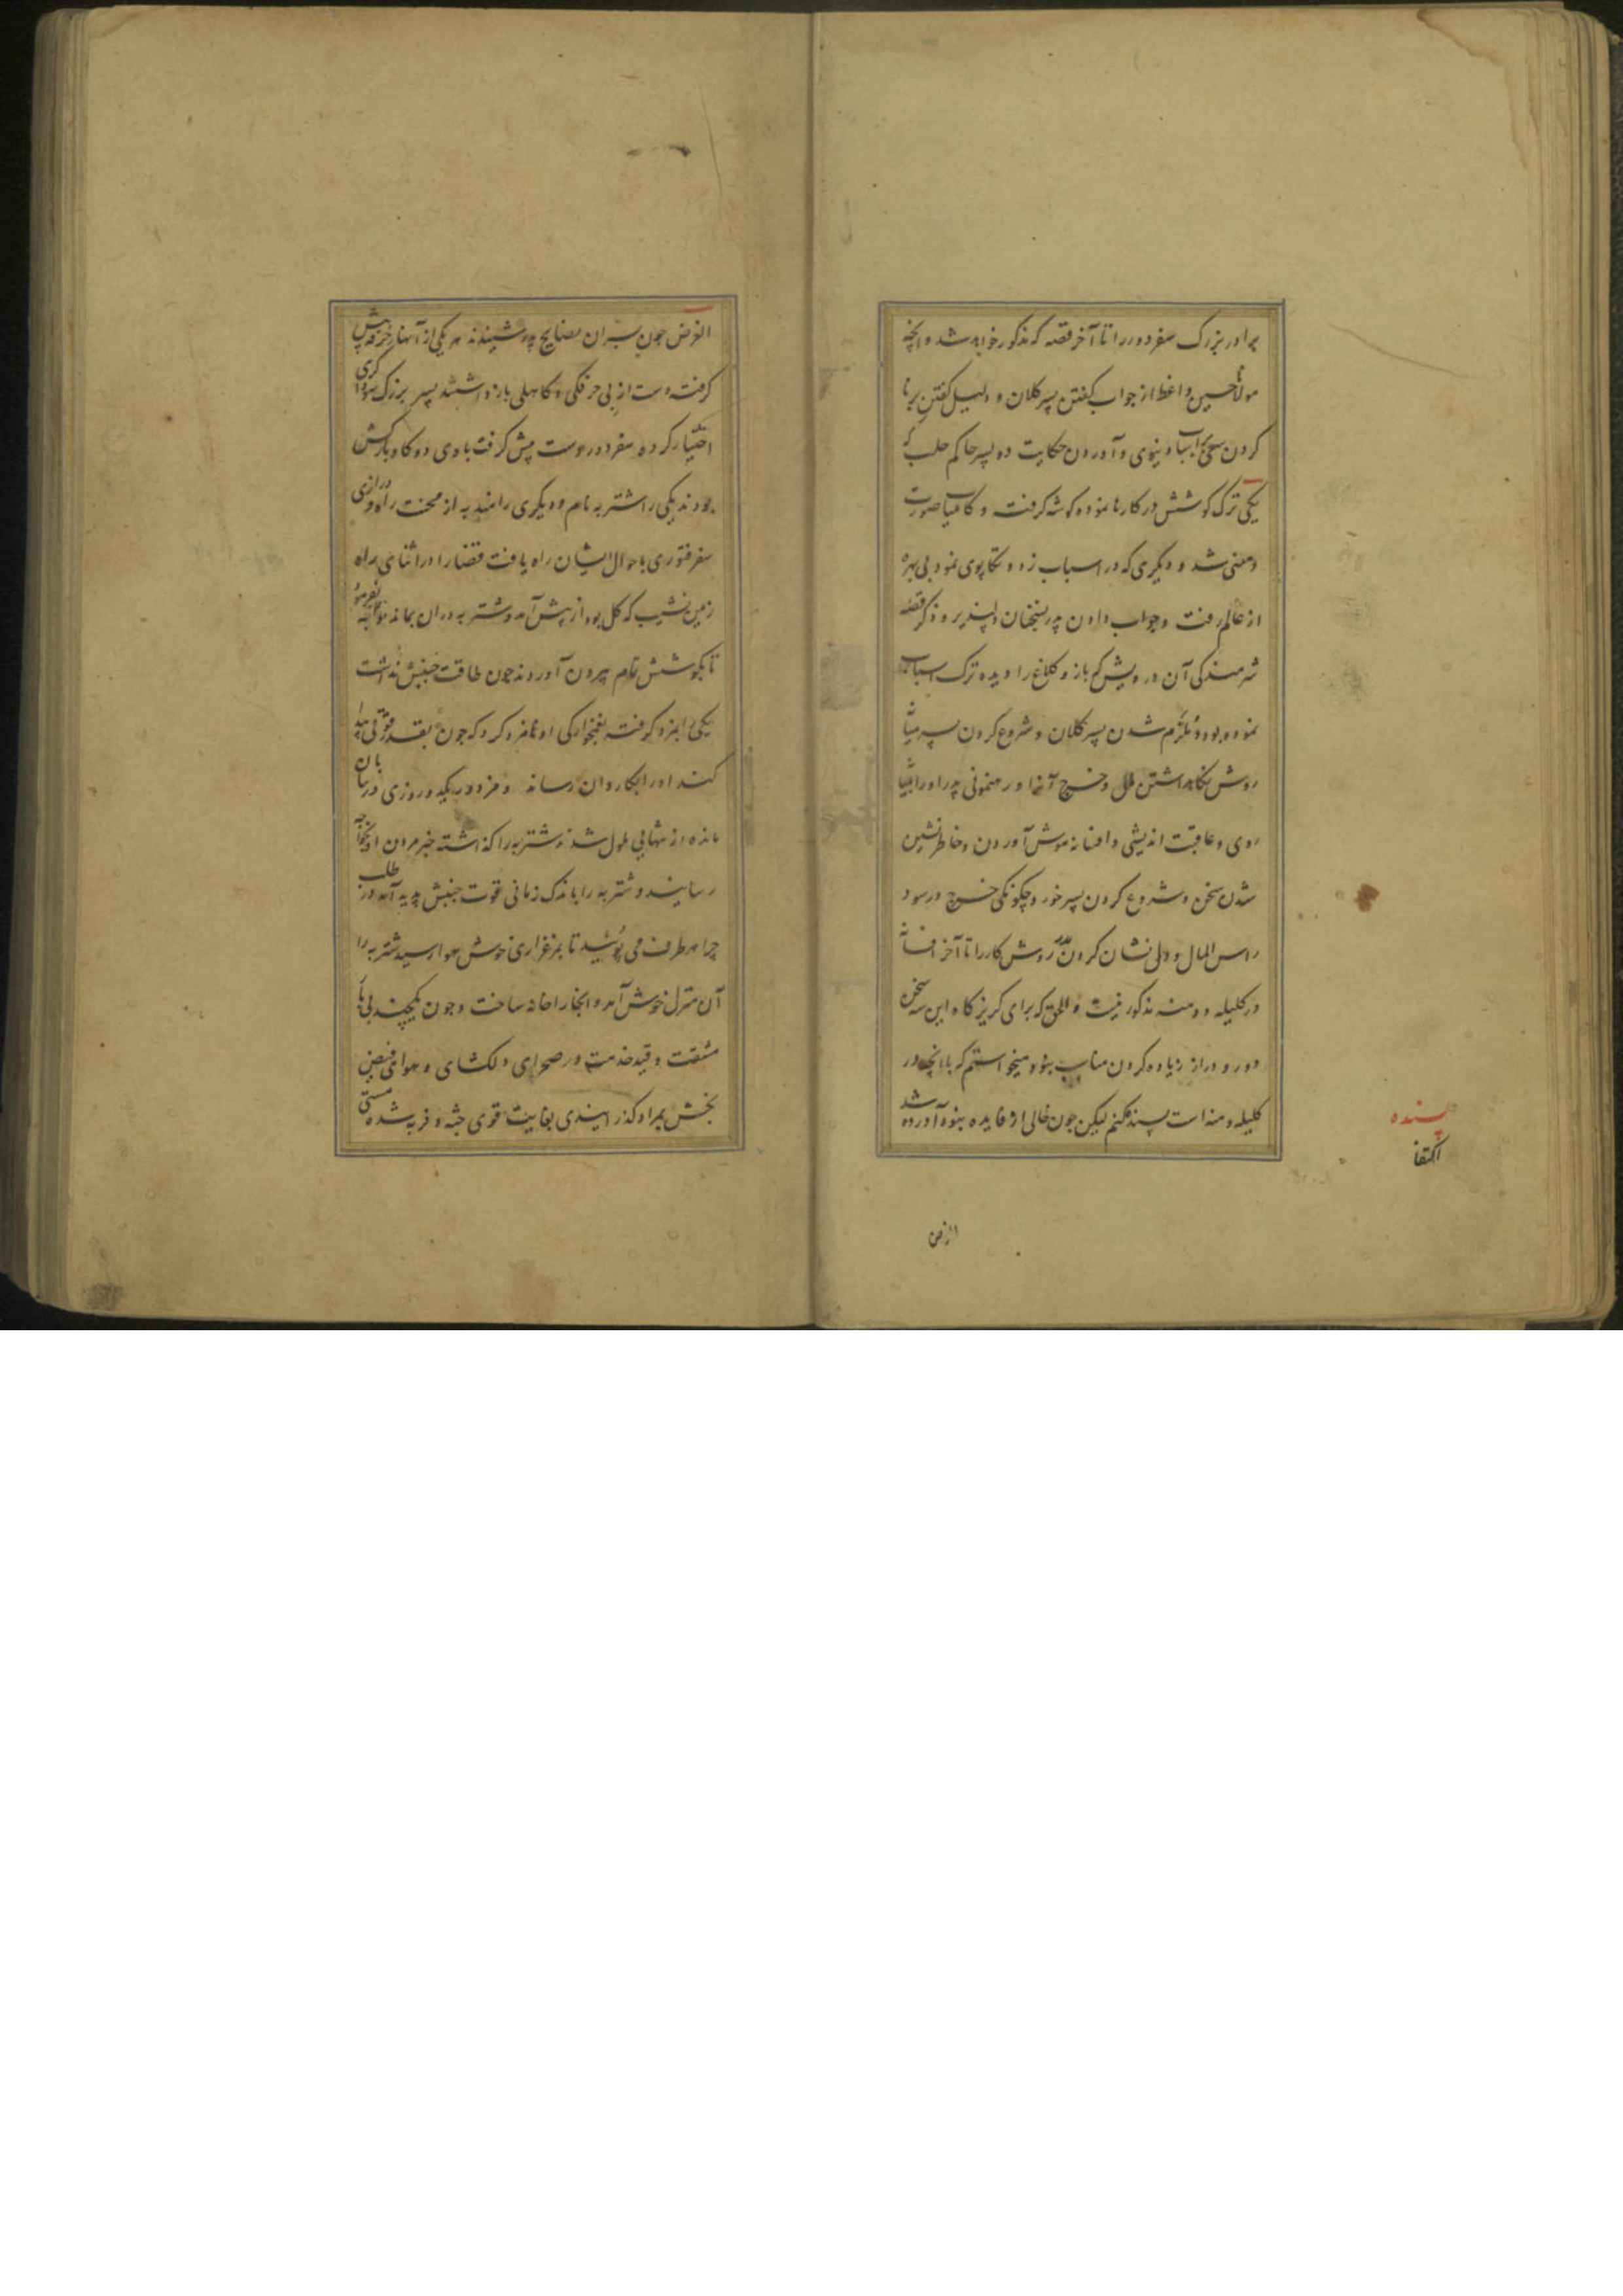 برادر بزرگ سفر دور را تا آخر قصه که مذکور خواهد شد و آنچه
مولانا حسین واعظ از جواب گفتن پسر کلان و دلیل گفتن بر نا
کردن سعی براسباب دنیوی و آوردن حکایت دو پسر حاکم حلب که
یکی ترک کوشش در کارها نموده گوشه گرفت و کامیاب صورت
و معنی شد و دیگری که در اسباب زد و تکاپوی نمود بی بهره
از عالم رفت و جواب دادن پدر بسخنان دلپذیر و ذکر قصه
شرمندگی آن درویش که باز و کلاغ را دیده ترک اسباب
نموده بود و ملزم شدن پسر کلان و شروع کردن پسر میانه
روش نگاهداشتن مال و خرج آنها و رهنمونی پدر او را بمیانه
روی و عاقبت اندیشی و افسانه موش آوردن و خاطرنشین
شدن سخن و شروع کردن پسر خورد و چگونگی خرج در سود
راس المال و دلی نشان کردن پدر روش کار را تا آخر افسانه
در کلیله و دمنه مذکور نیست و الحق که برای گریزگاه این سه سخن
دور و دراز زیاده کردن مناسب نبود و میخواستم که با آنچه در
کلیله و دمنه است پسند کنم لیکن چون خالی از فایده نبود آورده شد
بسنده
اکتفا
الغرض
الغرض چون پسران نصایح پدر شنیدند هر یکی از آنها حرفه پیش
گرفت دست از بی حرفگی و کاهلی بازداشتند پسر بزرگ سوداگری
اختیار کرده سفر دور دست پیش گرفت با وی دو گاو بارکش
بودند یکی را شتربه نام و دیگری را مندبه از محنت راه و درازی
سفر فتوری باحوال ایشان راه یافت قضارا در اثنای راه
زمین نشیب که گل بود از پیش آمد و شتربه در آن بماند خواجه بفرمود
تا بکوشش تمام بیرون آوردند چون طاقت جنبش نداشت
یکی را بمزد گرفته بغمخوارگی او نامزد کرد که چون بقدر قوتی پیدا
کند او را بکاروان رساند و مزدور یکدو روزی در بیابان
مانده از تنهایی ملول شد و شتربه را گذاشته خبر مردن او بخواجه
رسانید و شتربه را باندک زمانی قوت جنبش پدید آمد در طلب
چرا هر طرف می پویید تا بمرغزاری خوش هوا رسید شتربه را
آن منزل خوش آمد و آنجا را خانه ساخت و چون یکچند بی بار
مشقت و قید خدمت در صحرای دلکشای و هوای فیض
بخش بمراد گذرانیدی بغایت قوی جثه و فربه شده مستی